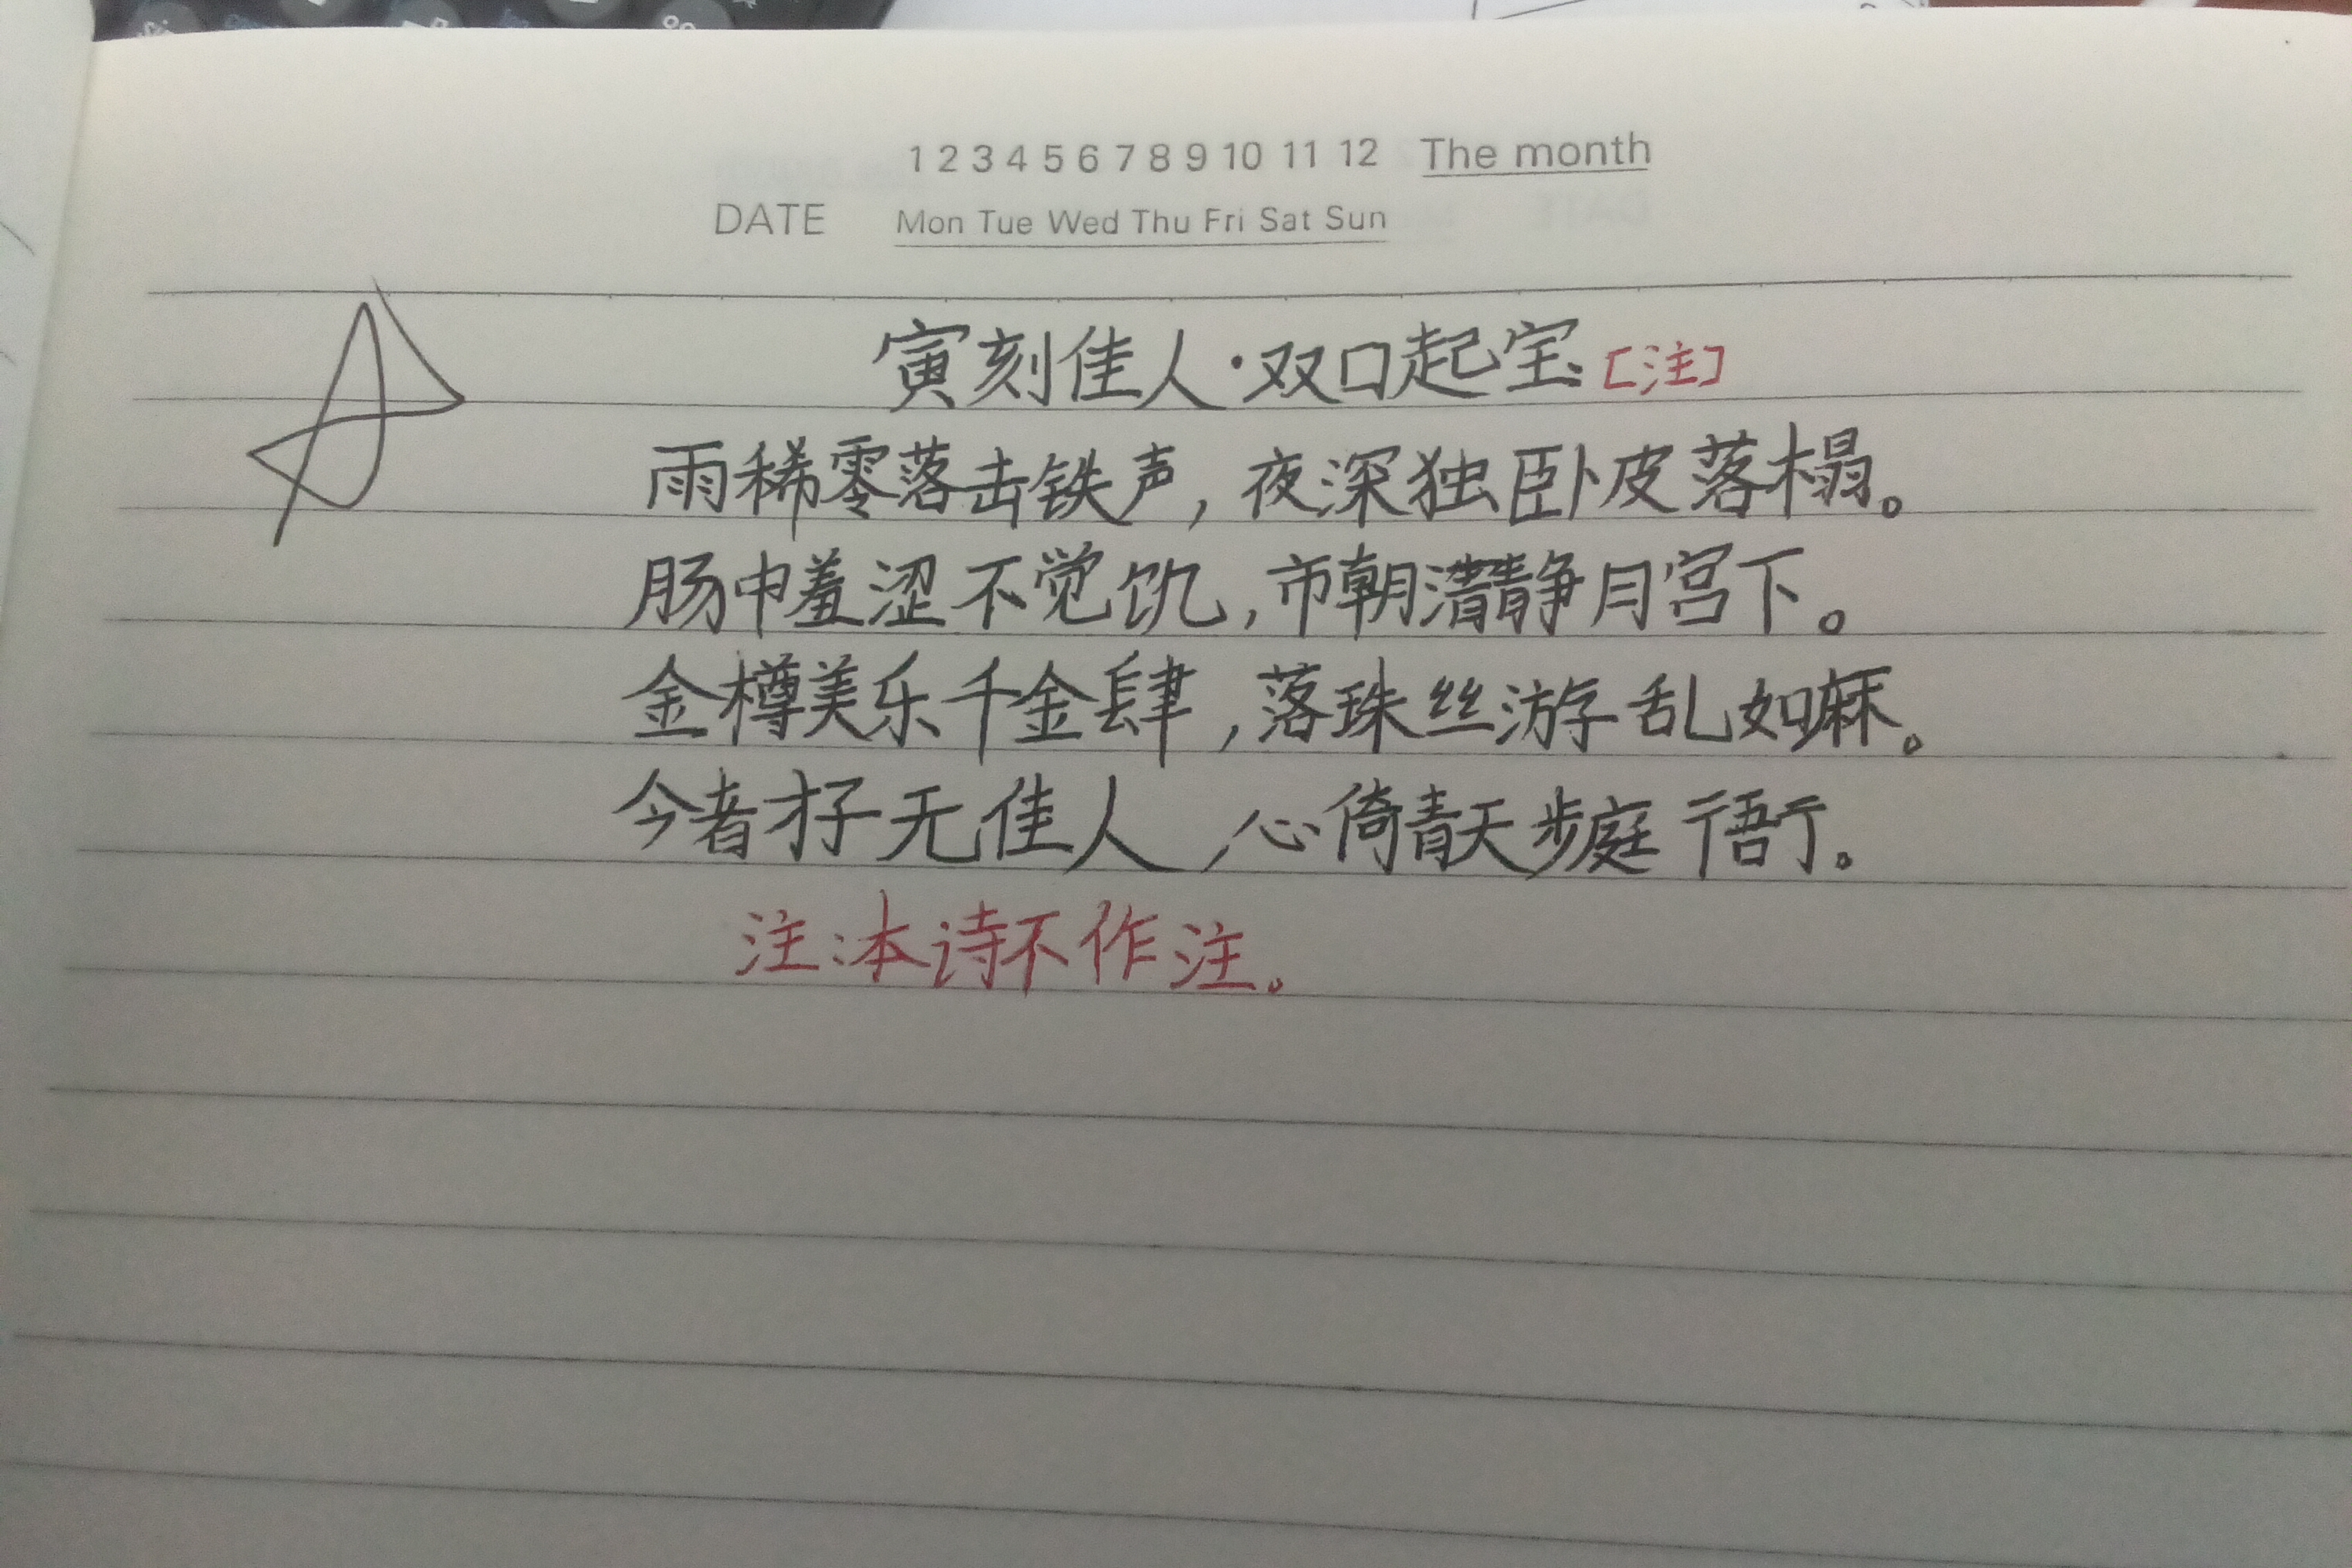 1 2 3 4 5 6 7 8 9 10 11 12 The month
DATE Mon Tue Wed Thu Fri Sat Sun
寅刻佳人·双口起宝[注]
雨稀零落击铁声，夜深独卧皮落榻。
肠中羞涩不觉饥，市朝清静月宫下。
金樽美乐千金肆，落珠丝游乱如麻。
今者才子无佳人，心倚青天步庭衙。
注：本诗不作注。